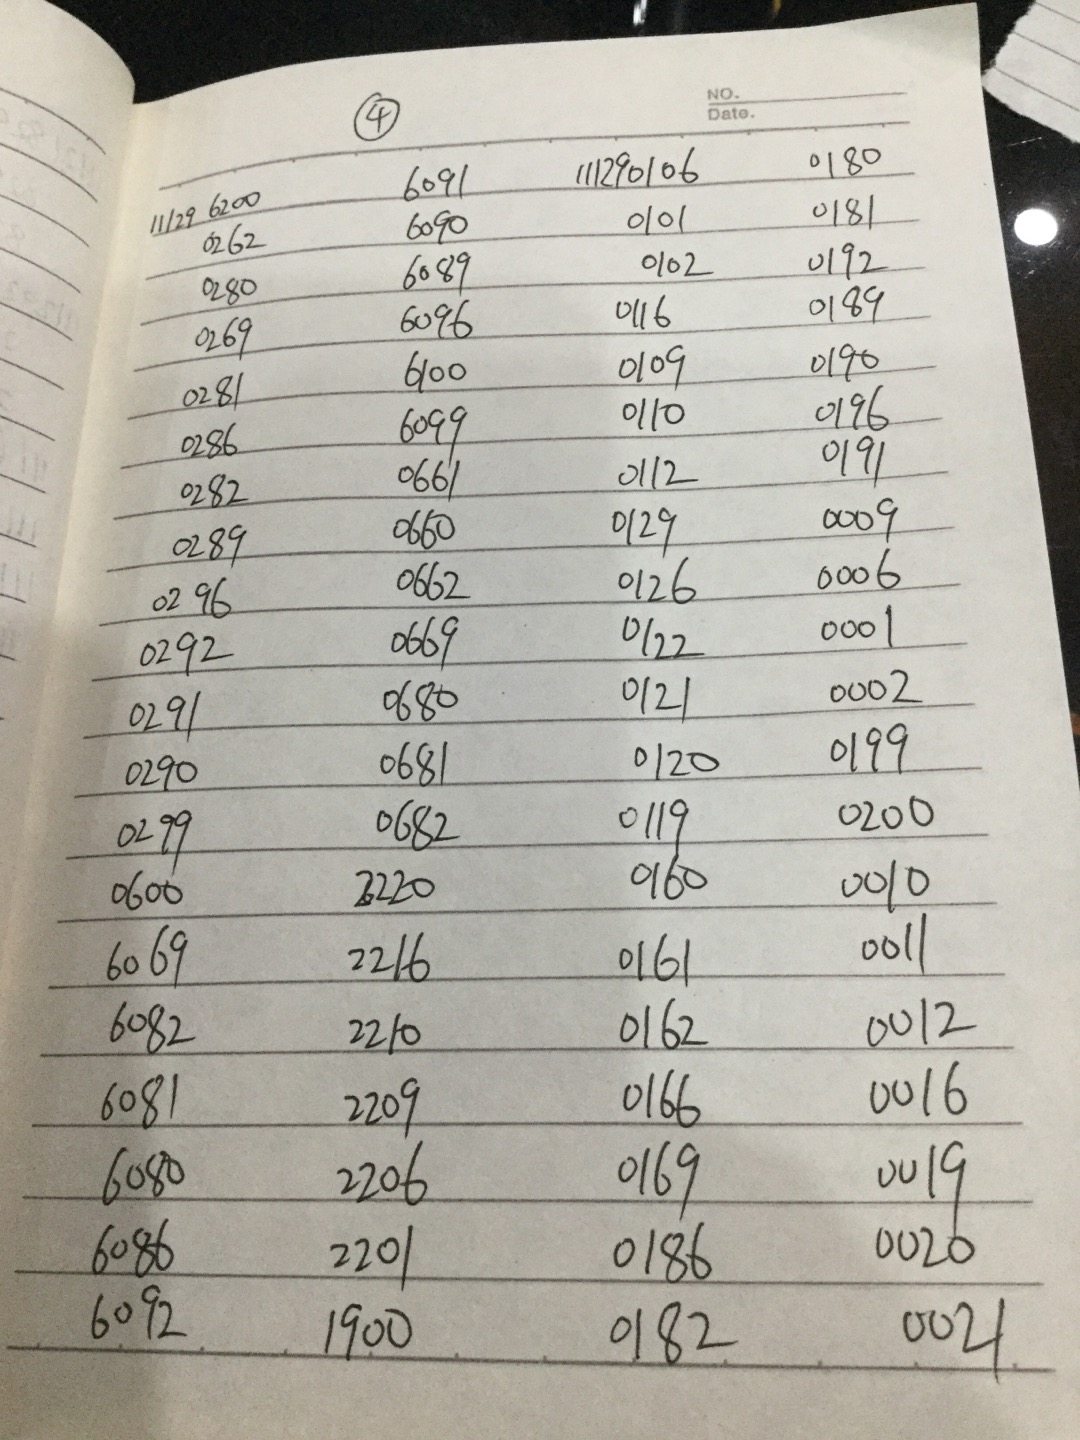 ④
NO.
Date.
11129 6200 6091 111290106 0180
0262 6090 0101 0181
0280 6089 0102 0192
0269 6096 0116 0189
0281 6100 0109 0190
0286 6099 0110 0196
0282 0661 0112 0191
0289 0660 0129 0009
0296 0662 0126 0006
0292 0669 0122 0001
0291 0680 0121 0002
0290 0681 0120 0199
0299 0682 0119 0200
0600 2220 0160 0010
6069 2216 0161 0011
6082 2210 0162 0012
6081 2209 0166 0016
6080 2206 0169 0019
6086 2201 0186 0020
6092 1900 0182 0021